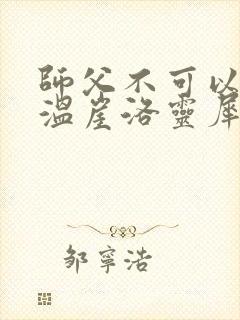 師父不可以
溫崖洛靈犀
邹寧浩